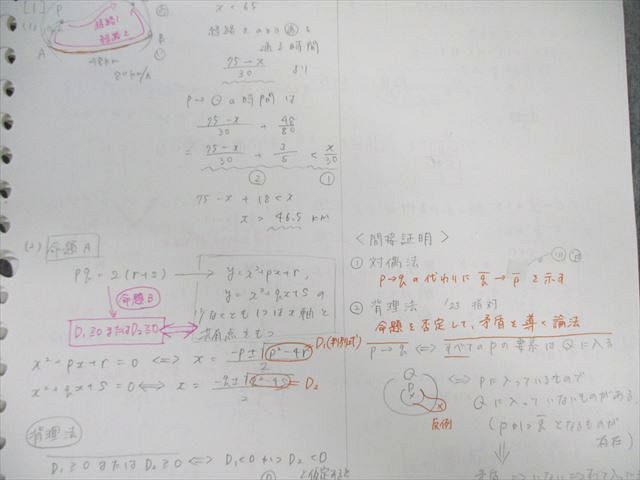 [1]
P
経路1
経路2
A
B
48km
80km/h
x < 65
時間
75-x/30 より
P→Qの時間は
75-x/30 + 48/80
= 75-x/30 + 3/5 < x/30
② ①
75-x+18<x
x > 46.5 km
(2) 命題A
pq = 2(r+s) → y=x²+px+r,
y=x²+qx+sの
少なくとも1つはx軸と
共有点をもつ
命題B
D₁≧0またはD₂≧0
x²+px+r=0 ⇔ x = -p±√p²-4r/2 D₁(判別式)
x²+qx+s=0 ⇔ x = -q±√q²-4s/2 D₂
背理法
D₁≧0またはD₂≧0 ⇔ D₁<0かつD₂<0
と仮定すると
<間接証明>
① 対偶法
p→qの代わりに q→p を示す
② 背理法
命題を否定して,矛盾を導く論法
p→q ⇔ すべてのPの要素はQに入る
Q
P
x
反例
⇔ Pに入っているもので
Qに入っていないものがある
(pかつqとなるものが
存在)